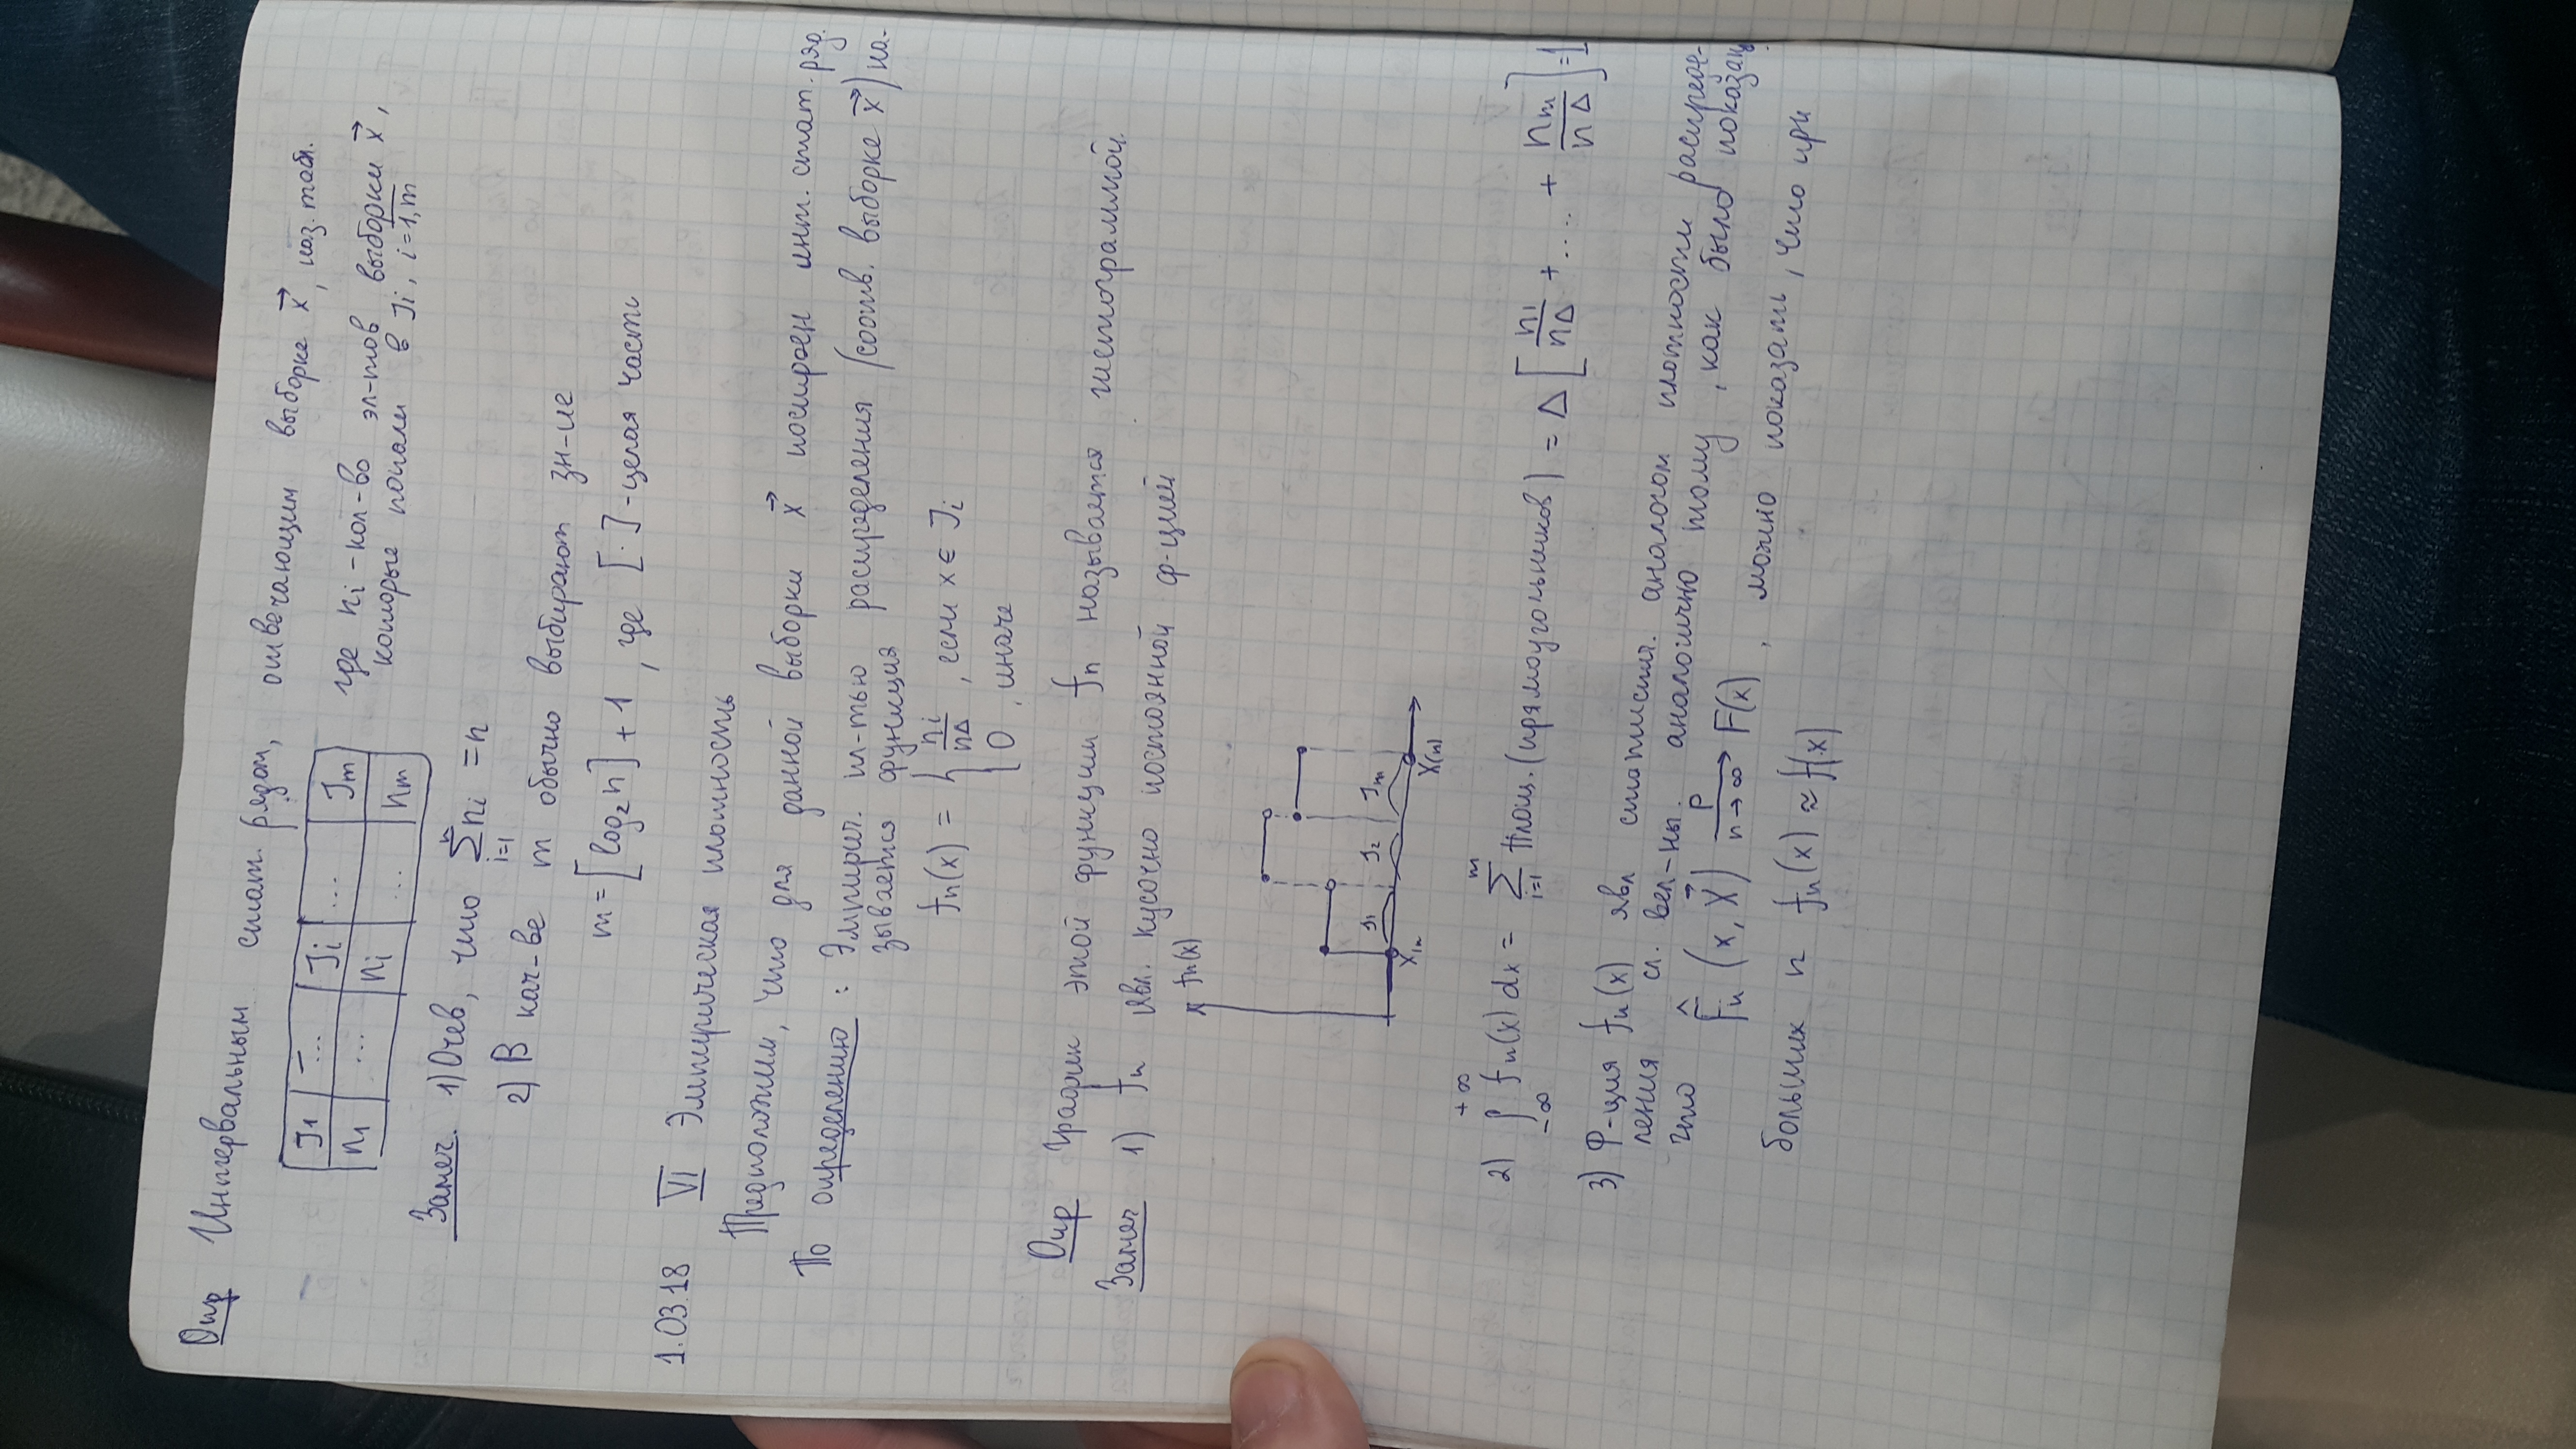 Опр Интервальным стат. рядом, отвечающим выборке x⃗, наз. табл.
J1 | ... | Ji | ... | Jm
n1 | ... | ni | ... | nm
где ni - кол-во эл-тов выборки x⃗,
которые попали в Ji, i=1,m
Замеч. 1) Очев, что Σ_{i=1}^{n} ni = n
2) В кач-ве m обычно выбирают зн-ие
m = [log₂n] + 1, где [·] - целая часть
1.03.18 VI Эмпирическая плотность
Предположим, что для данной выборки x⃗ построен инт. стат. ряд.
По определению: Эмпирич. пл-тью распределения (соотв. выборке x⃗) на-
зывается функция
fn(x) = { ni/nΔ, если x ∈ Ji
0, иначе
Опр График этой функции fn называется гистограммой.
Замеч 1) fn явл. кусочно постоянной ф-цией
fn(x)
J1 J2 Jm
X(n)
2) ∫_{-∞}^{+∞} fn(x) dx = Σ_{i=1}^{m} Площ. (прямоугольников) = Δ [n1/nΔ + .... + nm/nΔ] = 1
3) Ф-ция fn(x) явл статистич. аналогом плотности распреде-
ления сл. вел-ны. аналогично тому, как было показано
что F̂n (x, X⃗) —P, n→∞→ F(x), можно показать, что при
больших n fn(x) ≈ f(x)